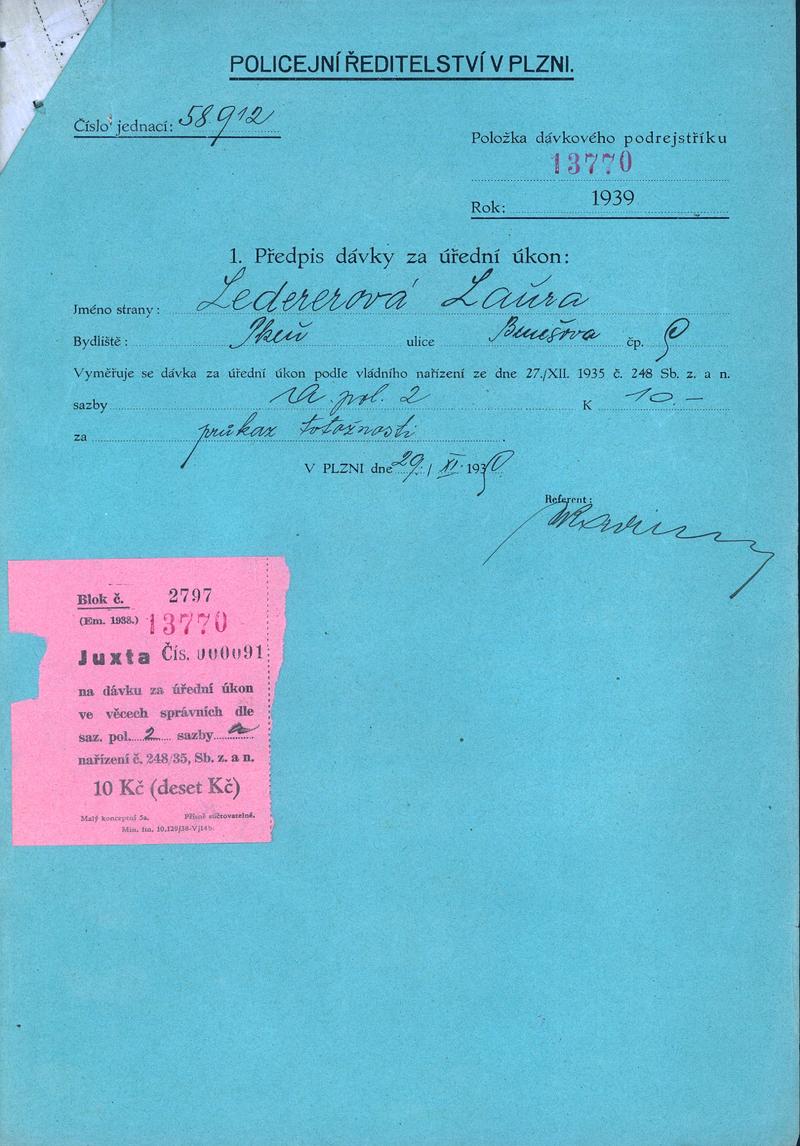 POLICEJNÍ ŘEDITELSTVÍ V PLZNI.
Číslo jednací: 58912
Položka dávkového podrejstříku
13770
Rok: 1939
1. Předpis dávky za úřední úkon:
Jméno strany: Ledererová Laura
Bydliště: Plzeň ulice Benešova čp. 9
Vyměřuje se dávka za úřední úkon podle vládního nařízení ze dne 27./XII. 1935 č. 248 Sb. z. a n.
sazby A pol. 2 K 10.–
za průkaz totožnosti
V PLZNI dne 29./XI. 1939
Referent:
Blok č. 2797
(Em. 1938.) 13770
Juxta Čís. 000091
na dávku za úřední úkon
ve věcech správních dle
saz. pol. 2 sazby a
nařízení č. 248/35, Sb. z. a n.
10 Kč (deset Kč)
Malý konceptní 5a. Přísně súčtovatelné.
Min. fin. 10.129/38-V/14b.